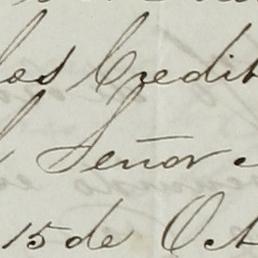 los Credit
Señor
15 de Oct